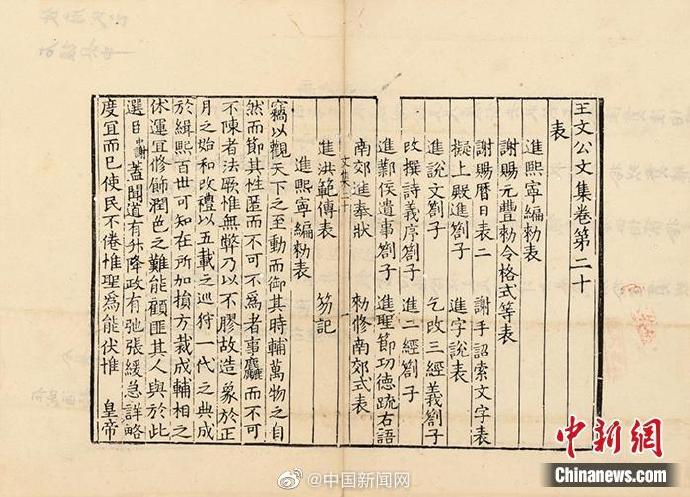 王文公文集卷第二十
表
進熙寧編勑表
謝賜元豐勑令格式等表
謝賜曆日表二 謝手詔索文字表
擬上殿進劄子 進字說表
進說文劄子 乞改三經義劄子
改撰詩義序劄子 進二經劄子
進鄴侯遺事劄子 進聖節功德疏右語
南郊進奉狀 勑修南郊式表
文集二十 一
進洪範傳表 笏記
進熙寧編勑表
竊以觀天下之至動而御其時輔萬物之自
然而節其性匿而不可不爲者事麤而不可
不陳者法厥惟無弊乃以不膠故造象於正
月之始和改禮以五載之巡狩一代之典成
於緝熙百世可知在所加損方裁成輔相之
休運宜修飾潤色之難能顧匪其人與於此
選臣中謝蓋聞道有升降政有弛張緩急詳略
度宜而已使民不倦惟聖爲能伏惟 皇帝
@中国新闻网
中新网
Chinanews.com